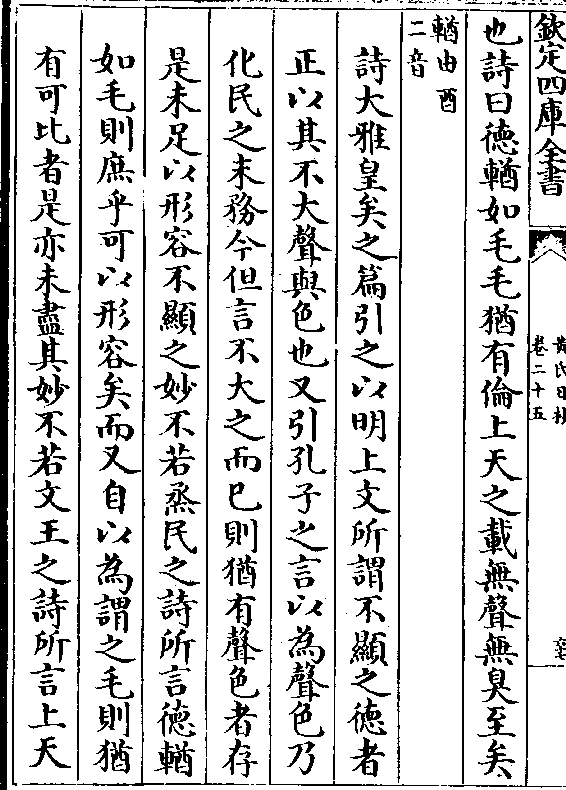 欽定四庫全書
黄氏日抄
卷二十五
也詩曰徳輶如毛毛猶有倫上天之載無聲無臭至矣
輶由酉
二音
詩大雅皇矣之篇引之以明上文所謂不顯之徳者
正以其不大聲與色也又引孔子之言以為聲色乃
化民之末務今但言不大之而已則猶有聲色者存
是未足以形容不顯之妙不若烝民之詩所言徳輶
如毛則庶乎可以形容矣而又自以為謂之毛則猶
有可比者是亦未盡其妙不若文王之詩所言上天